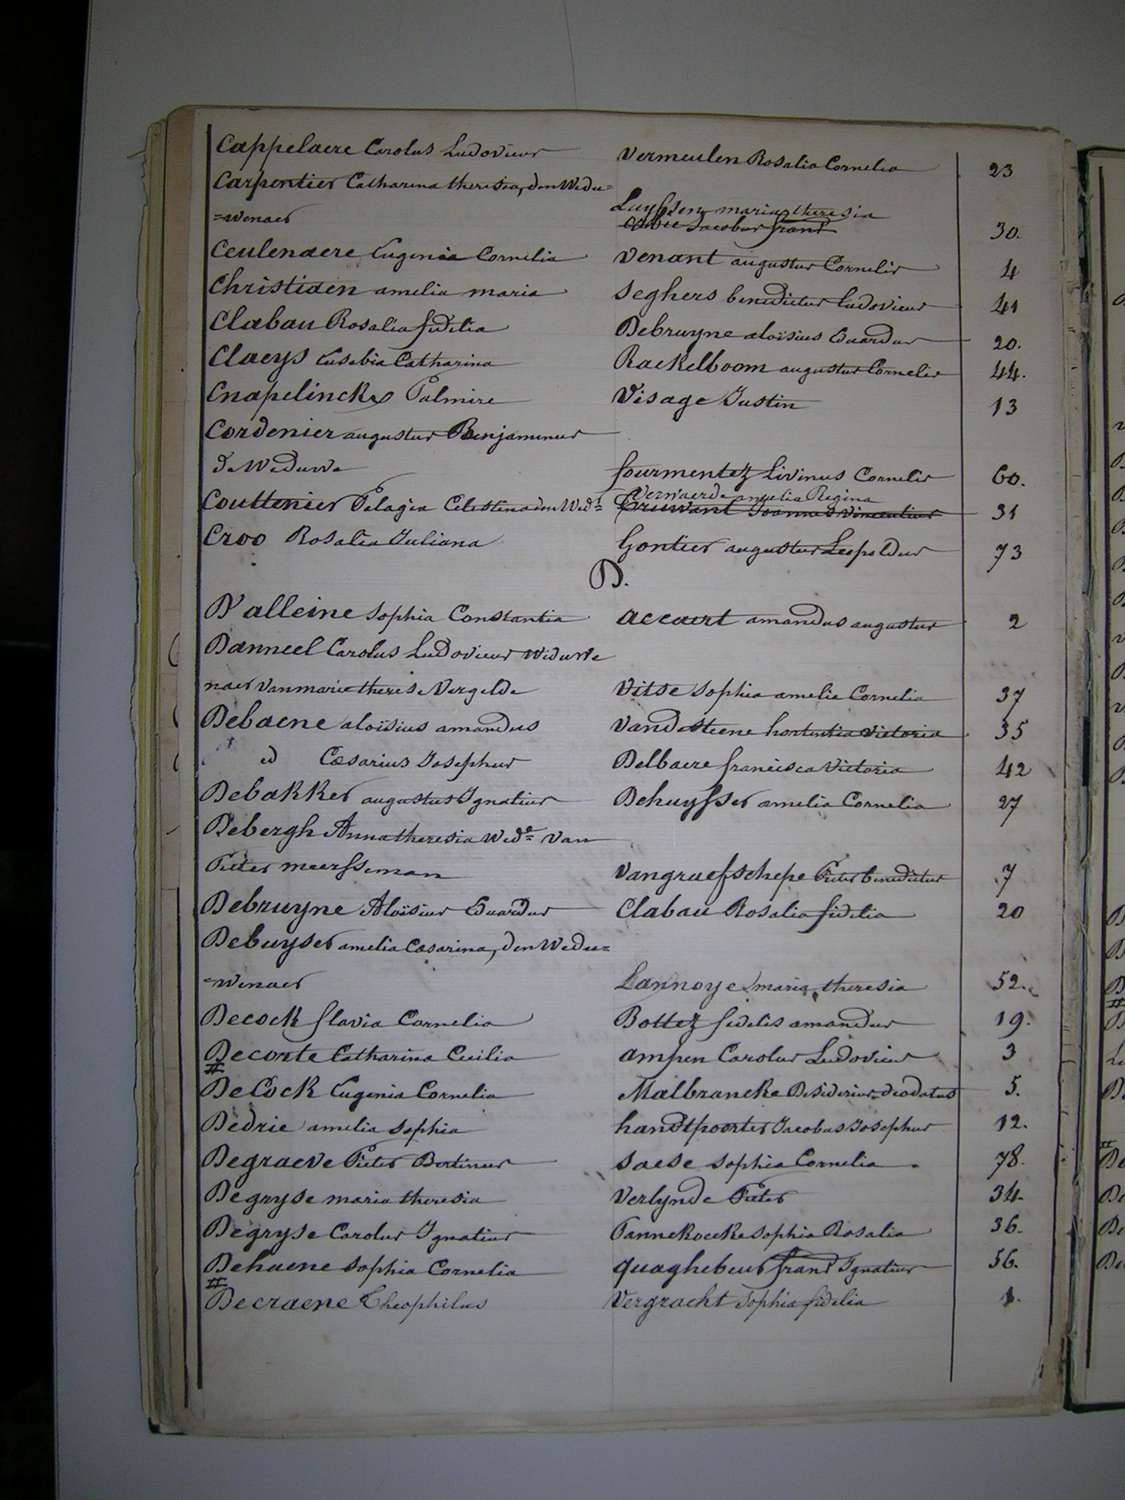 Cappelaere Carolus Ludovicus Vermeulen Rosalia Cornelia 23
Carpentier Catharina theresia, den Wedu=
=wenaer Luyssen maria theresia
Jacobus franc 30.
Ceulenaere Eugenia Cornelia Venant augustus Cornelis 4
Christiaen amelia maria Seghers benedictus Ludovicus 41
Clabau Rosalia fidelia Debruyne aloïsius Eduardus 20.
Claeys Eusebia Catharina Raekelboom augustus Cornelis 44.
Cnapelinckx Palmire Visage Justin 13
Cordenier augustus Benjaminus
de Weduwe fourmentez Livinus Cornelis 60.
Verwaerde amelia Regina
Couttenier Pelagia Celestina den Wedr Cruwant Joannes Vincentius 31
Croo Rosalia Juliana Gontier augustus Leopoldus 73
D.
D'alleine Sophia Constantia accaert amandus augustus 2
Danneel Carolus Ludovicus Weduwe
naer van marie therese Vergelde Vitse Sophia amelie Cornelia 37
Debaene aloïsius amandus Vandesteene hortentia Victoria 35
id Cæsarius Josephus Delbaere francisca Victoria 42
Debakker augustus Ignatius Dehuysser amelia Cornelia 27
Debergh Anna theresia Wede van
Pieter meersseman Vangraefschepe Pieter benedictus 7
Debruyne Aloïsius Eduardus Clabau Rosalia fidelia 20
Debuyser amelia Cæsarina, den Wedu=
=wenaer Lannoye maria theresia 52.
Decock flavia Cornelia Bottez fidelis amandus 19.
Deconte Catharina Cecilia ampen Carolus Ludovicus 3
#
DeCock Eugenia Cornelia Malbrancke Desiderius deodatus 5.
Dedrie amelia Sophia handtpoorter Jacobus Josephus 12.
Degraeve Pieter Bertinus Saese Sophia Cornelia 78.
Degryse maria theresia Verlynde Pieter 34.
Degryse Carolus Ignatius Pannekoucke Sophia Rosalia 36.
Dehaene Sophia Cornelia quaghebeur franc Ignatius 56.
#
Decraene Theophilus Vergracht Sophia fidelia 1.